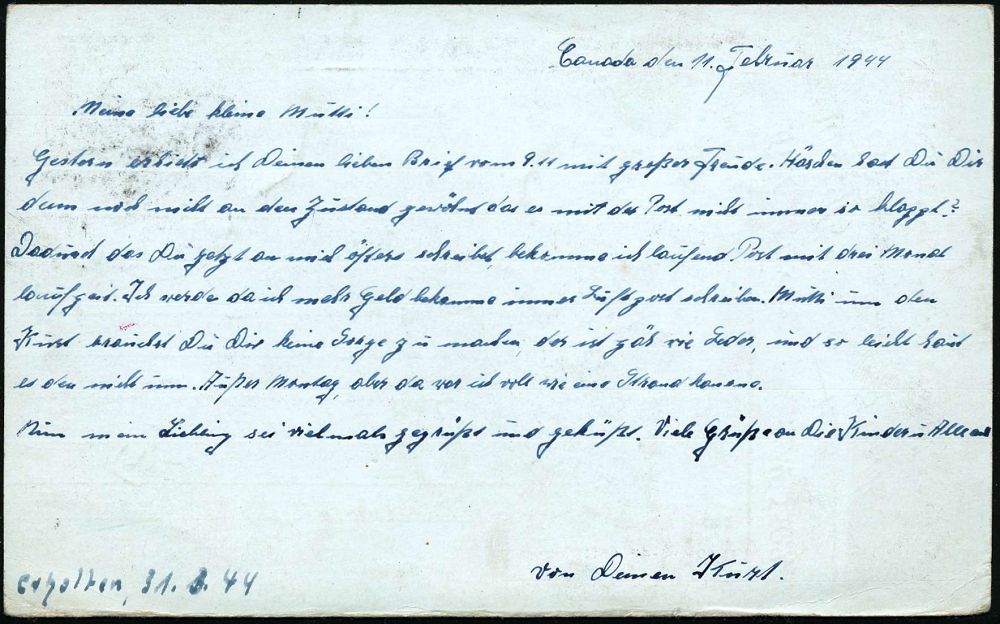 Canada den 11. Februar 1944
Meine liebe kleine Mutti!
Gestern erhielt ich Deinen lieben Brief vom 9.11 mit großer Freude. hast Du Dir
denn noch nicht an den Zustand gewöhnt das es mit der Post nicht immer so klappt?
Dadurch das Du jetzt an mich öfters schreibst, bekomme ich laufend Post mit drei Monat
laufzeit. Ich werde da ich mehr Geld bekomme immer Luftpost schreiben. Mutti um den
Kurt brauchst Du Dir keine Sorge zu machen, der ist zäh wie Leder, und so leicht haut
es den nicht um. Außer Montag, aber da war ich voll wie eine Strandkanone.
Nun mein Liebling sei vielmals gegrüßt und geküßt. Viele Grüße an Die Kinder u Alle
von Deinen Kurt.
erhalten, 31. 44